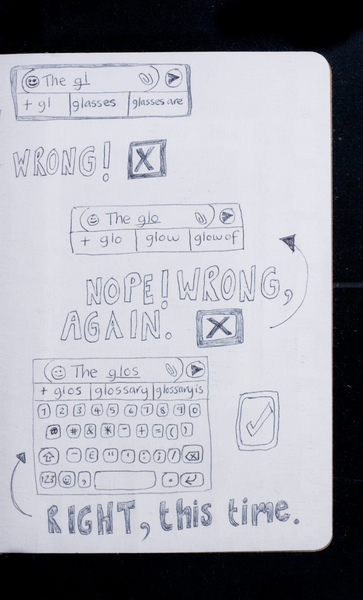 The gl
+ gl glasses glasses are
WRONG! X
The glo
+ glo glow glow of
NOPE! WRONG,
AGAIN. X
The glos
+ glos glossary glossary is
1 2 3 4 5 6 7 8 9 0
@ # & * - + = ( )
123
RIGHT, this time.